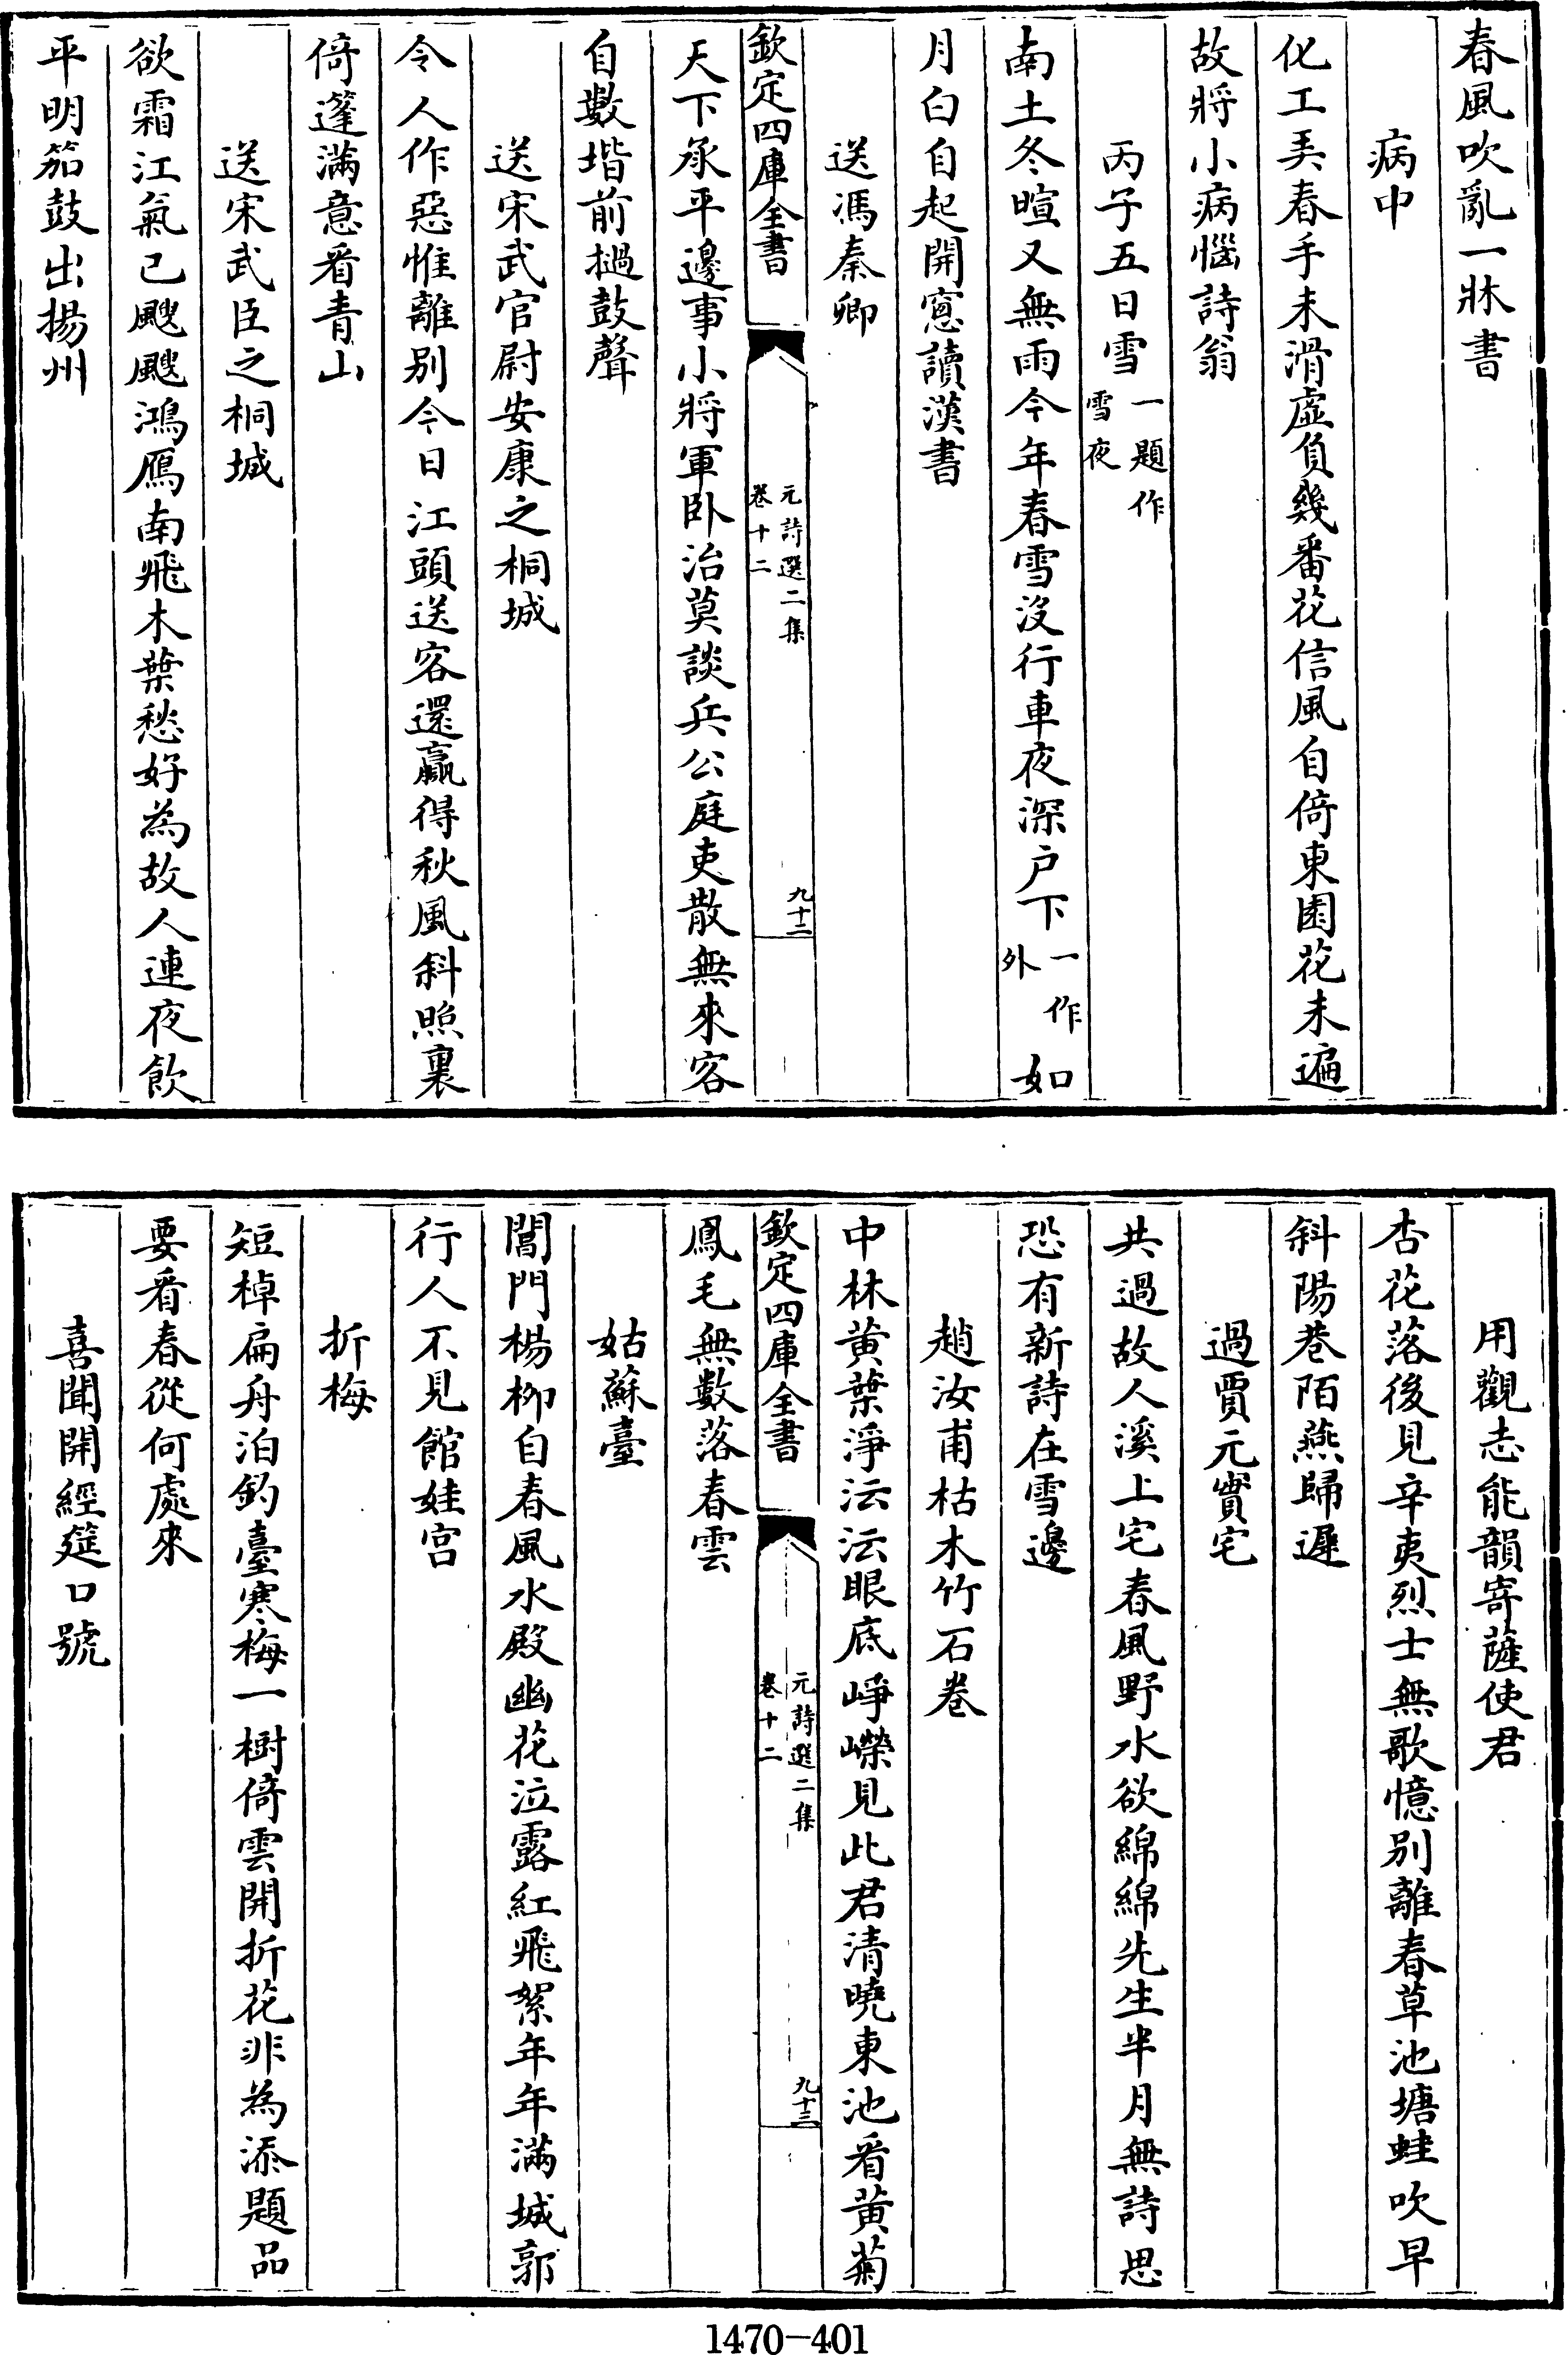 春風吹亂一牀書
病中
化工美春手未滑虛負幾番花信風自倚東園花未遍
故將小病惱詩翁
丙子五日雪一題作雪夜
南土冬暄又無雨今年春雪沒行車夜深戶下一作外如
月白自起開窻讀漢書
送馮秦卿
欽定四庫全書
元詩選二集
卷十二
九十二
天下承平邊事小將軍卧治莫談兵公庭吏散無來客
自數堦前撾鼓聲
送宋武官尉安康之桐城
令人作惡惟離别今日江頭送客還贏得秋風斜照裏
倚蓬滿意看青山
送宋武臣之桐城
欲霜江氣已颼颼鴻鴈南飛木葉愁好為故人連夜飲
平明笳鼓出揚州
用觀志能韻寄薩使君
杏花落後見辛夷烈士無歌憶别離春草池塘蛙吹早
斜陽巷陌燕歸遲
過賈元實宅
共過故人溪上宅春風野水欲綿綿先生半月無詩思
恐有新詩在雪邊
趙汝甫枯木竹石卷
中林黄葉淨沄沄眼底崢嶸見此君清曉東池看黄菊
欽定四庫全書
元詩選二集
卷十二
九十三
鳳毛無數落春雲
姑蘇臺
閶門楊栁自春風水殿幽花泣露紅飛絮年年滿城郭
行人不見館娃宮
折梅
短棹扁舟泊釣臺寒梅一樹倚雲開折花非為添題品
要看春從何處來
喜聞開經筵口號
1470-401